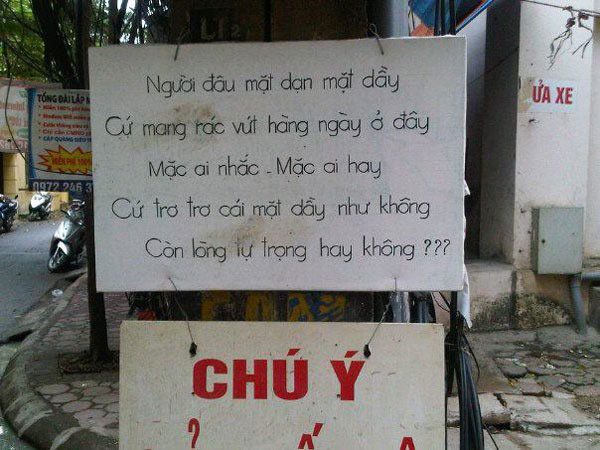 LT2
Người đâu mặt dạn mặt dầy
Cứ mang rác vứt hàng ngày ở đây
Mặc ai nhắc - Mặc ai hay
Cứ trơ trơ cái mặt dầy như không
Còn lòng tự trọng hay không ???
CHÚ Ý
TỔNG ĐÀI LẮP
MIỄN PHÍ 100%
0972 246 3
ỬA XE